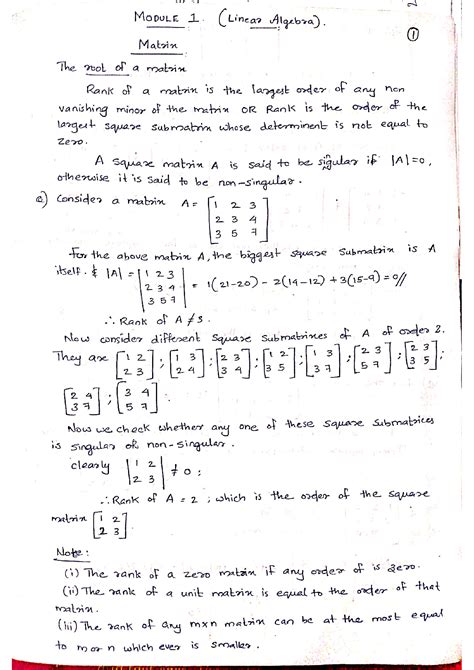 MODULE 1. (Linear Algebra).
①
Matrix
The root of a matrix
Rank of a matrix is the largest order of any non
vanishing minor of the matrix OR Rank is the order of the
largest square submatrix whose determinent is not equal to
zero.
A square matrix A is said to be sigular if |A|=0,
otherwise it is said to be non-singular.
Q) Consider a matrix A = [1 2 3
2 3 4
3 5 7]
For the above matrix A, the biggest square submatrix is A
itself. & |A| = |1 2 3
2 3 4
3 5 7| = 1(21-20) - 2(14-12) + 3(15-9) = 0//
∴ Rank of A ≠ 3.
Now consider different square submatrixes of A of order 2.
They are [1 2
2 3] ; [1 3
2 4] ; [2 3
3 4] ; [1 2
3 5] ; [1 3
3 7] ; [2 3
5 7] ; [2 3
3 5] ;
[2 4
3 7] ; [3 4
5 7]
Now we check whether any one of these square submatrices
is singular or non-singular.
clearly |1 2
2 3| ≠ 0 ;
∴ Rank of A = 2 ; which is the order of the square
matrix [1 2
2 3]
Note :
(i) The rank of a zero matrix if any order of is zero.
(ii) The rank of a unit matrix is equal to the order of that
matrix.
(iii) The rank of any mxn matrix can be at the most equal
to m or n which ever is smaller.